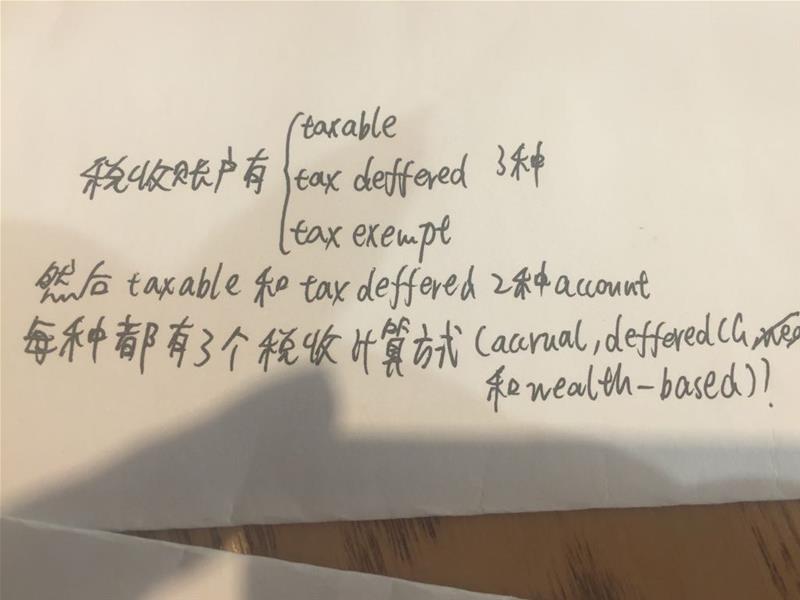 taxable
税收账户有 tax deffered 3种
tax exempt
然后 taxable 和 tax deffered 2种 account
每种都有3个税收计算方式 (accrual, deffered CG,
和 wealth-based)?